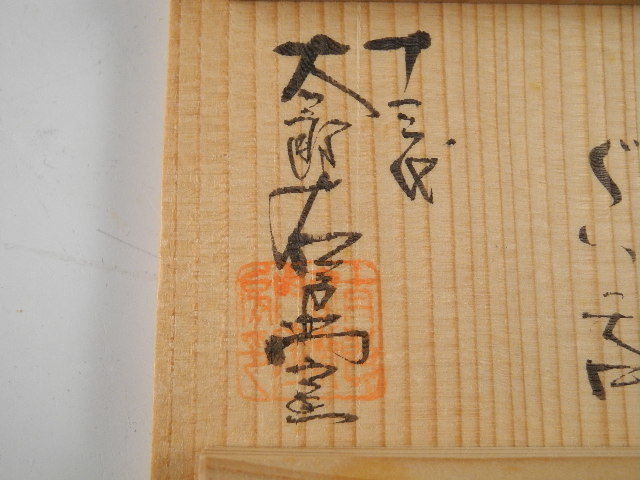 ぐい呑
十三代
太郎右衛門窯